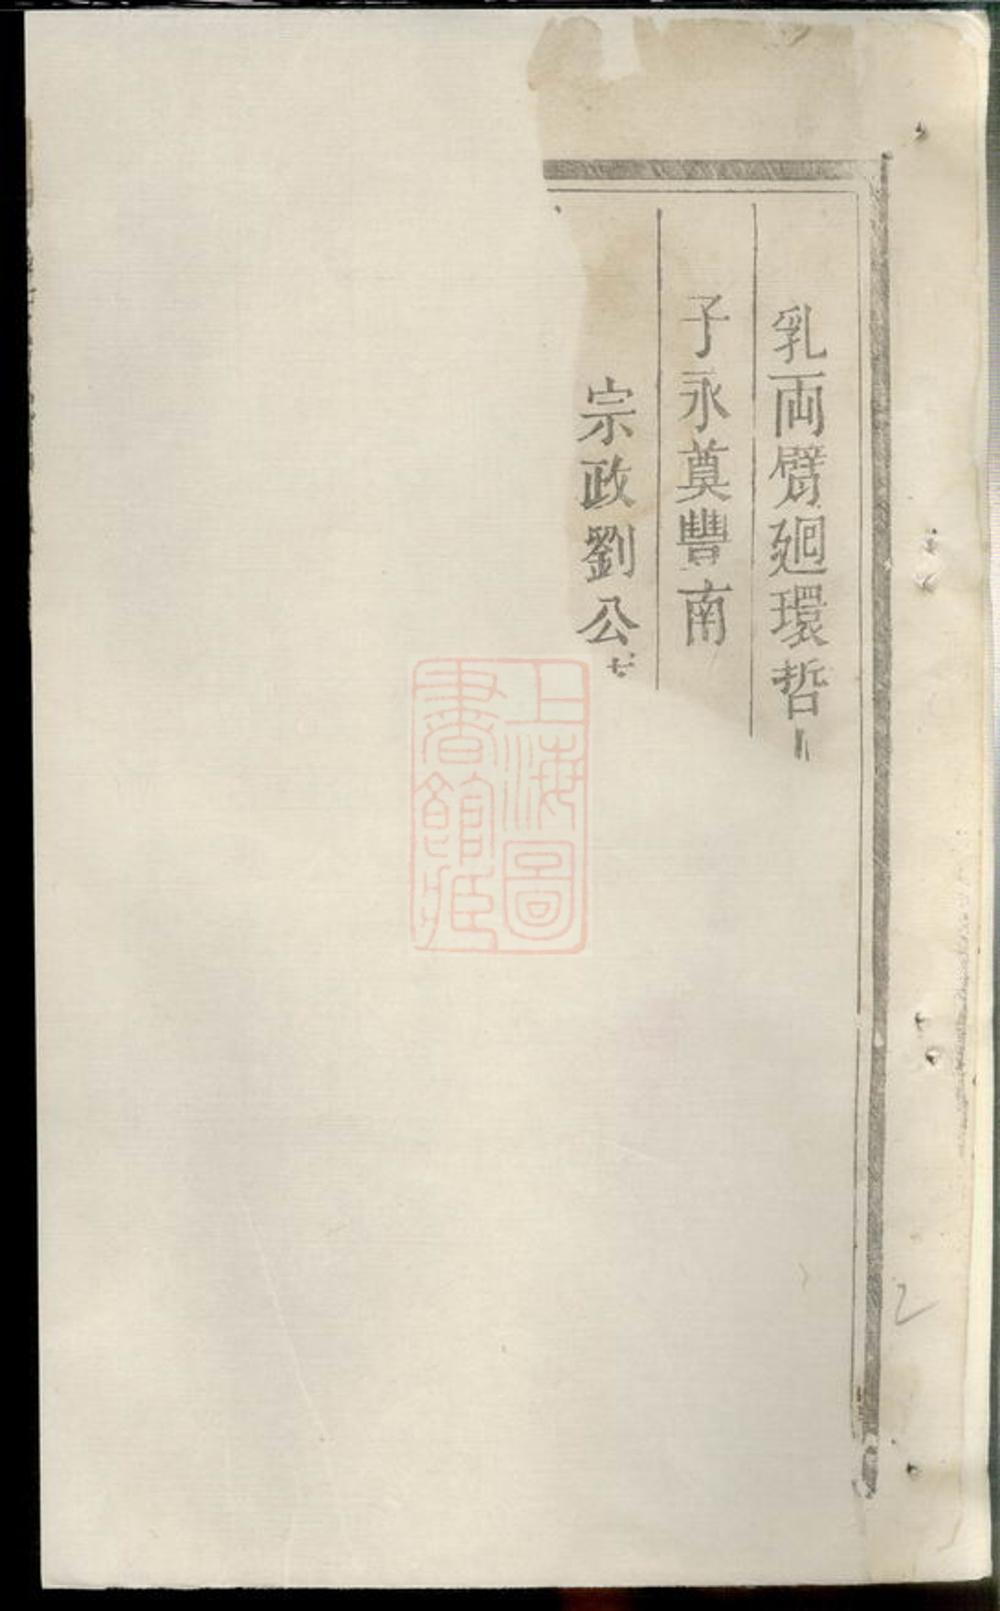 乳兩臂廻環哲
子永奠豐南
宗政劉公
上海圖
書館藏
2